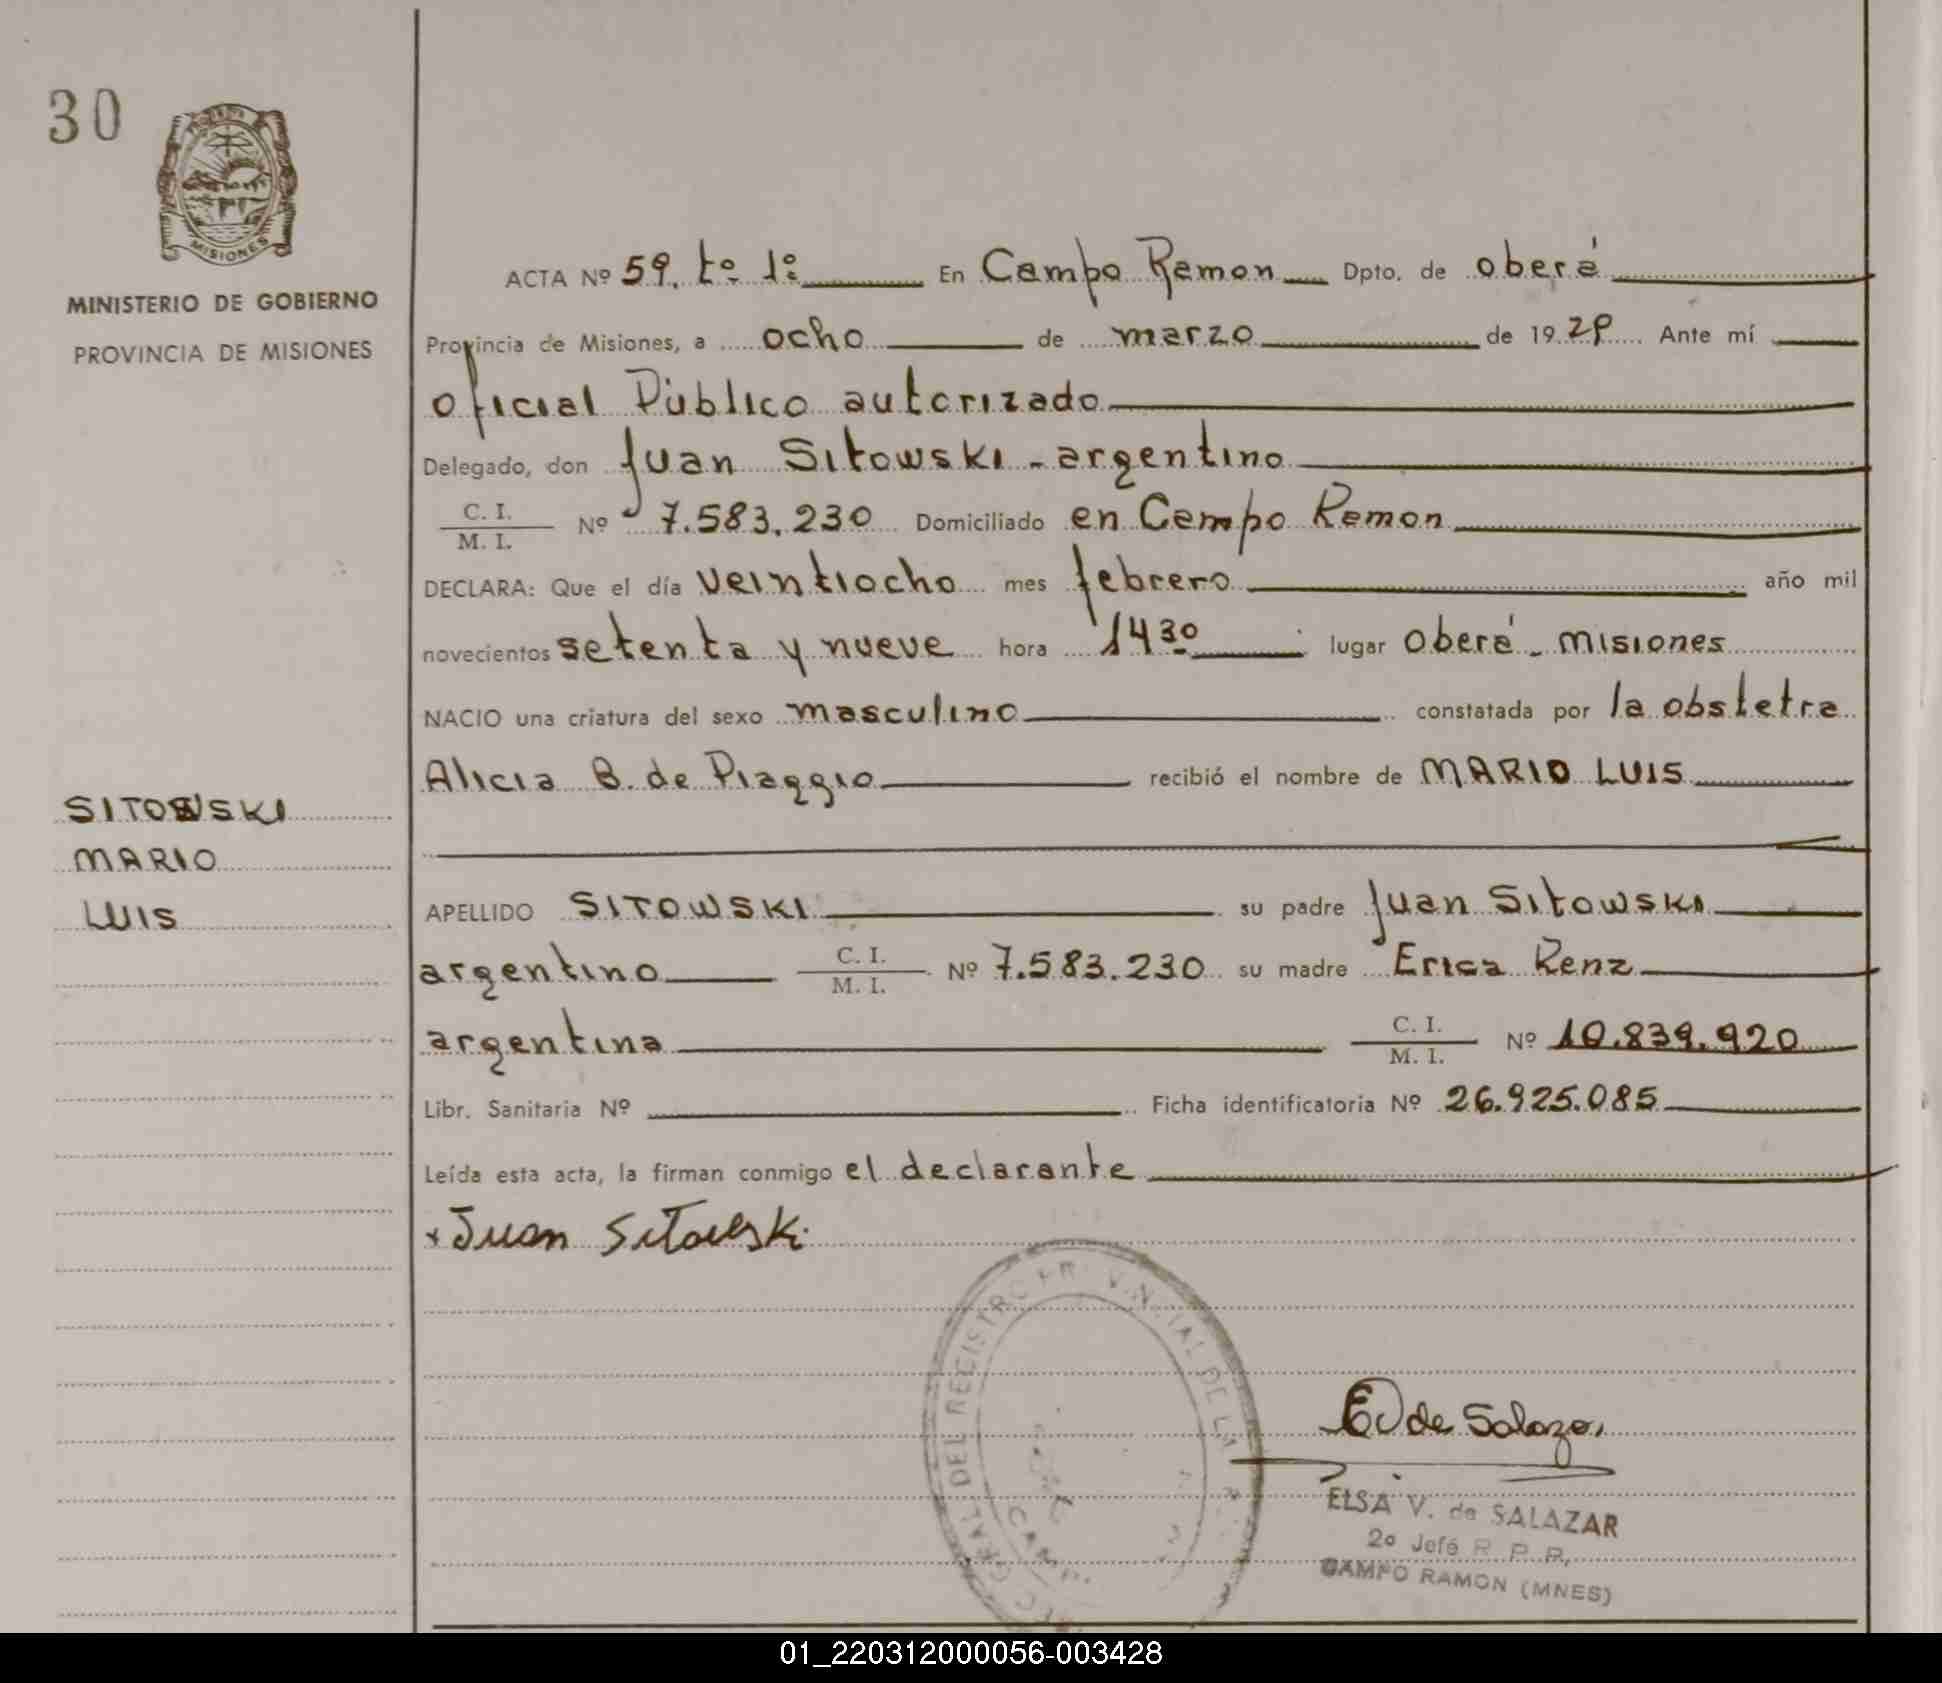 30
MISIONES
MINISTERIO DE GOBIERNO
PROVINCIA DE MISIONES
ACTA Nº 59. tº 1º En Campo Ramon Dpto. de oberá
Provincia de Misiones, a ocho de marzo de 1979 Ante mí
oficial Público autorizado
Delegado, don Juan Sitowski - argentino
C. I.
M. I. Nº 7.583.230 Domiciliado en Campo Ramon
DECLARA: Que el día veintiocho mes febrero año mil
novecientos setenta y nueve hora 14 30 lugar oberá - misiones
NACIO una criatura del sexo masculino constatada por la obstetra
Alicia B. de Piaggio recibió el nombre de MARIO LUIS
SITOWSKI
MARIO
LUIS
APELLIDO SITOWSKI su padre Juan Sitowski
argentino C. I.
M. I. Nº 7.583.230 su madre Erica Renz
argentina C. I.
M. I. Nº 10.839.920
Libr. Sanitaria Nº Ficha identificatoria Nº 26.925.085
Leída esta acta, la firman conmigo el declarante
x Juan Sitowski
GRAL DEL REGISTRO PROVINCIAL DE LA
CAMPO
E V de Salazar
ELSA V. de SALAZAR
2º Jefe R. P. P.
CAMPO RAMON (MNES)
01_220312000056-003428